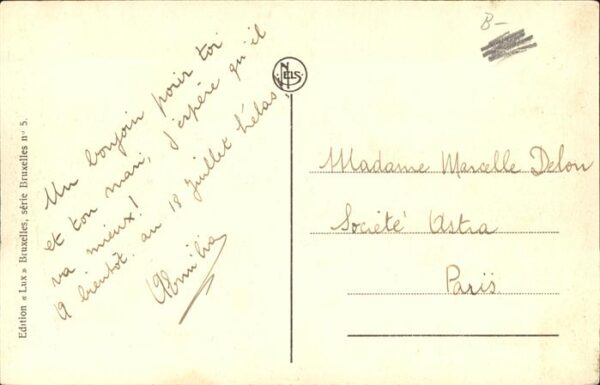 B-
NELS
Un bonjour pour toi
et ton mari, j'espère qu'il
va mieux!
A bientôt. au 18 Juillet hélas!
Madame Marcelle Delon
Société Astra
Paris
Edition « Lux » Bruxelles, série Bruxelles nº 5.